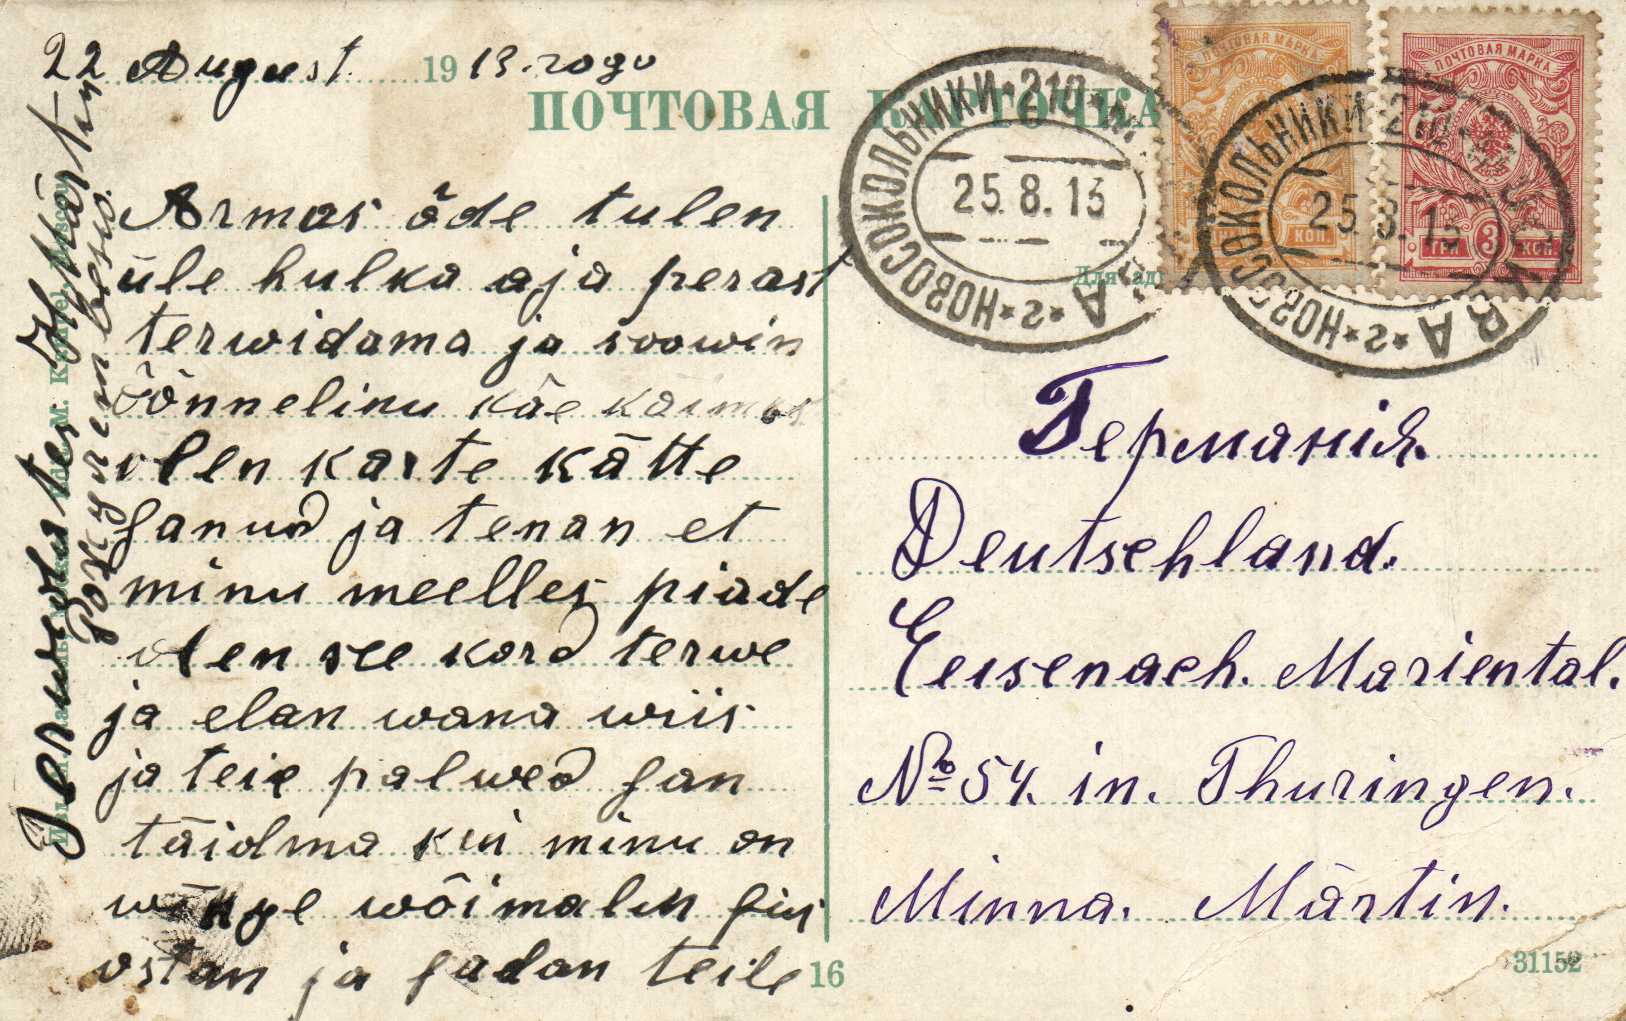 22 August 1913. году
ПОЧТОВАЯ КАРТОЧКА
Armas õde tulen
üle hulka aja perast
terwidama ja soowin
õõnnelinu käe
olen karte kätte
sanud ja tenan et
minu meelles piade
olen see kord terwe
ja elan wana wiis
ja teie palwed san
täidma kui minu on
wõimalin siis
ostan ja sadan teile
Jerwidates JhMärtin
НОВОСОКОЛЬНИКИ * 210 *
25.8.13
* г *
ПОЧТОВАЯ МАРКА
КОП.
НОВОСОКОЛЬНИКИ * 210 *
25.8.13
* г *
ПОЧТОВАЯ МАРКА
ТРИ 3 КОП.
Для
Германія.
Deutschland.
Eeisenach. Mariental.
№ 54. in. Thuringen.
Minna. Märtin.
16
31152